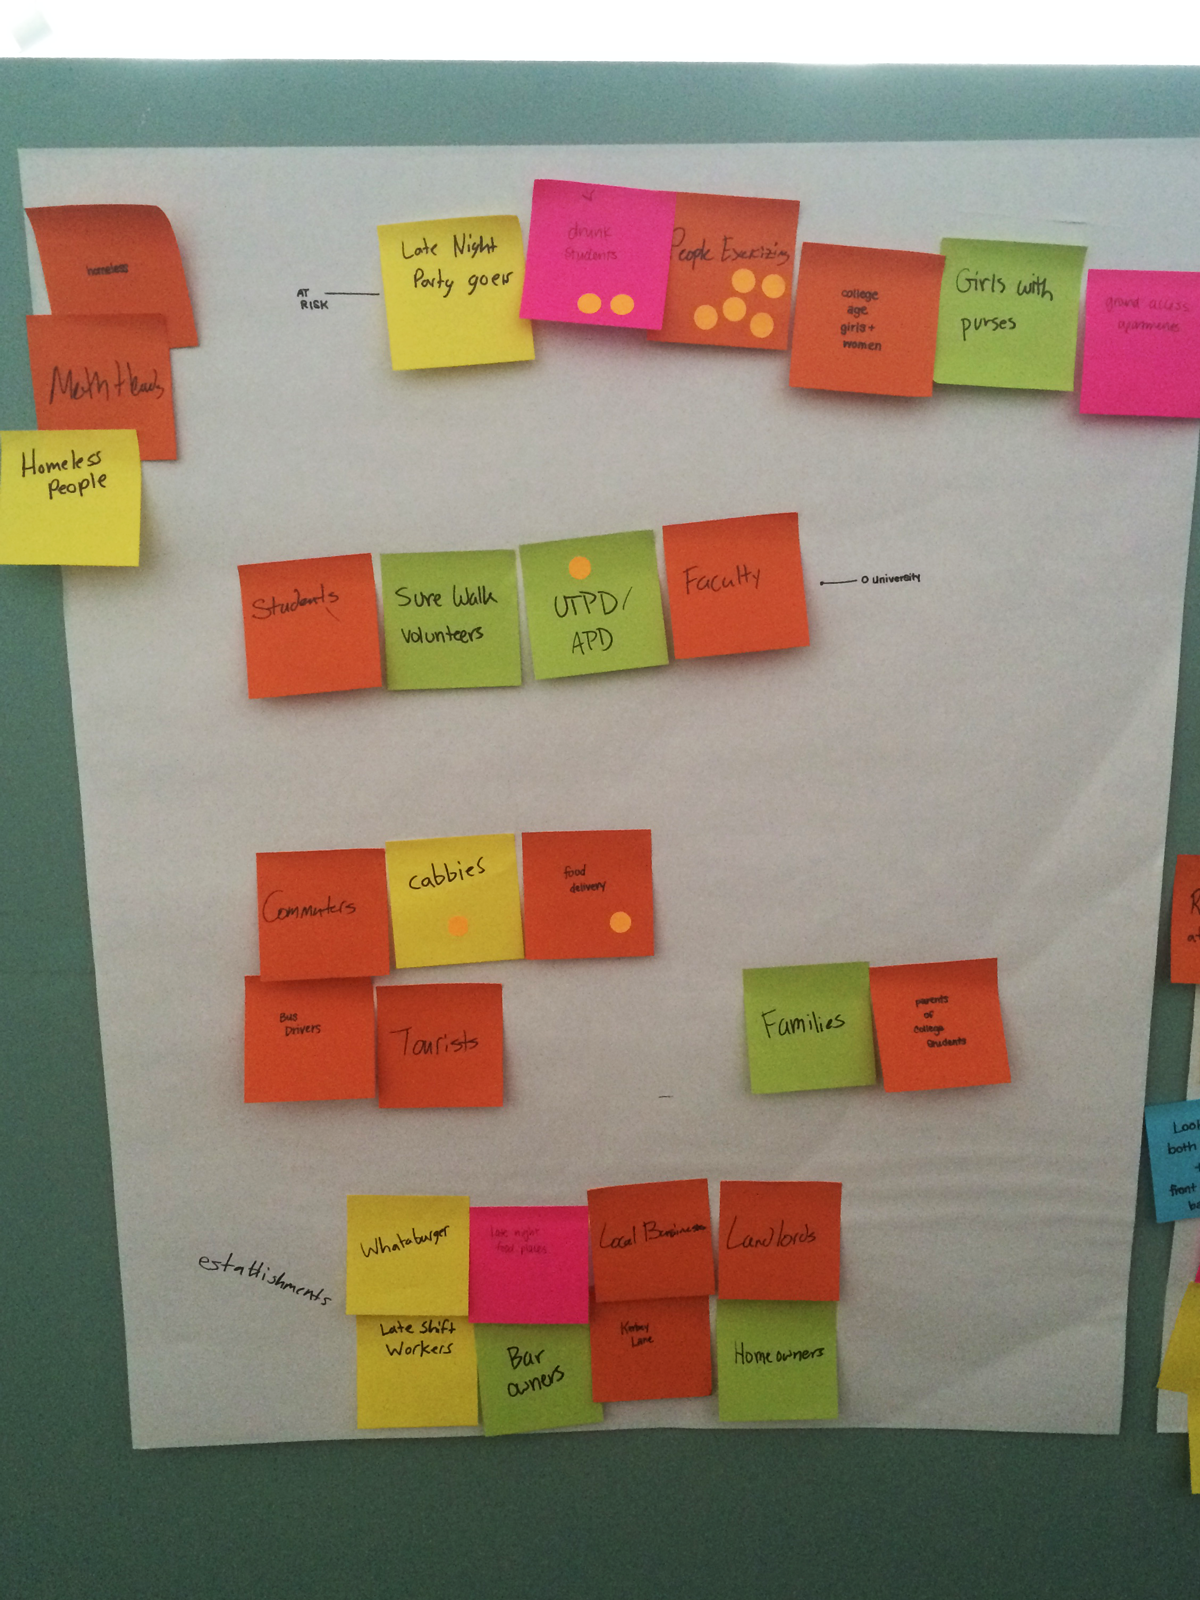 homeless
Meth Heads
Homeless
People
AT
RISK
Late Night
Party goers
drunk
students
People Exercizing
college
age
girls +
women
Girls with
purses
ground access
apartments
Students
Sure Walk
volunteers
UTPD/
APD
Faculty
University
Commuters
cabbies
food
delivery
Bus
Drivers
Tourists
Families
parents
of
College
Students
Look
both
front
establishments
Whataburger
late night
food places
Local Businesses
Landlords
Late Shift
Workers
Bar
owners
Kerbey
Lane
Homeowners